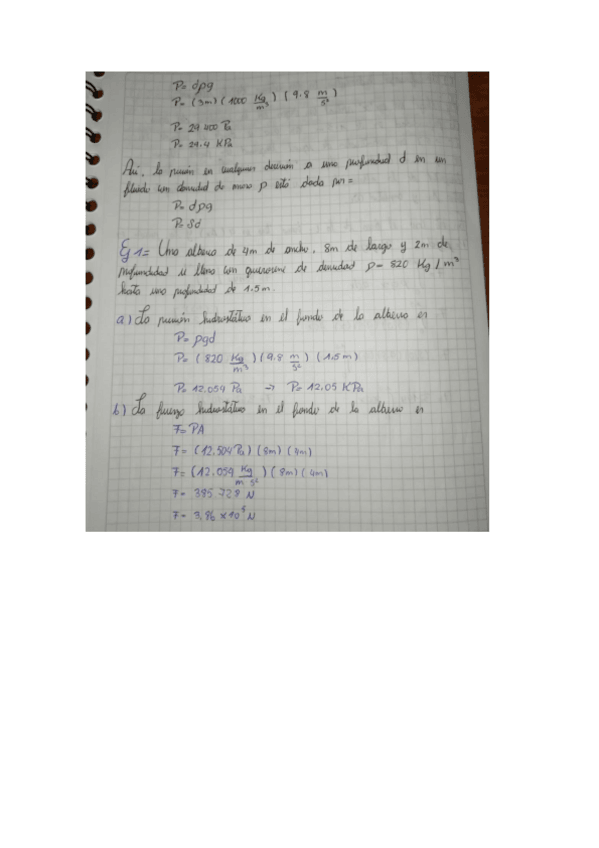 P= dpg
P= (3m) (1000 Kg/m³) (9.8 m/s²)
P= 29 400 Pa
P= 29.4 KPa
Así, la presión en cualquier dirección a una profundidad d en un
fluido con densidad de masa p está dada por=
P= dpg
P= Sd
Ej 1= Una alberca de 4m de ancho, 8m de largo y 2m de
profundidad se llena con queroseno de densidad p= 820 Kg/m³
hasta una profundidad de 1.5m.
a) La presión hidrostática en el fondo de la alberca es
P= pgd
P= (820 Kg/m³) (9.8 m/s²) (1.5m)
P= 12.054 Pa → P= 12.05 KPa
b) La fuerza hidrostática en el fondo de la alberca es
F= PA
F= (12.504 Pa) (8m) (4m)
F= (12.054 Kg/m s²) (8m) (4m)
F= 385 728 N
F= 3,86 x10⁵ N